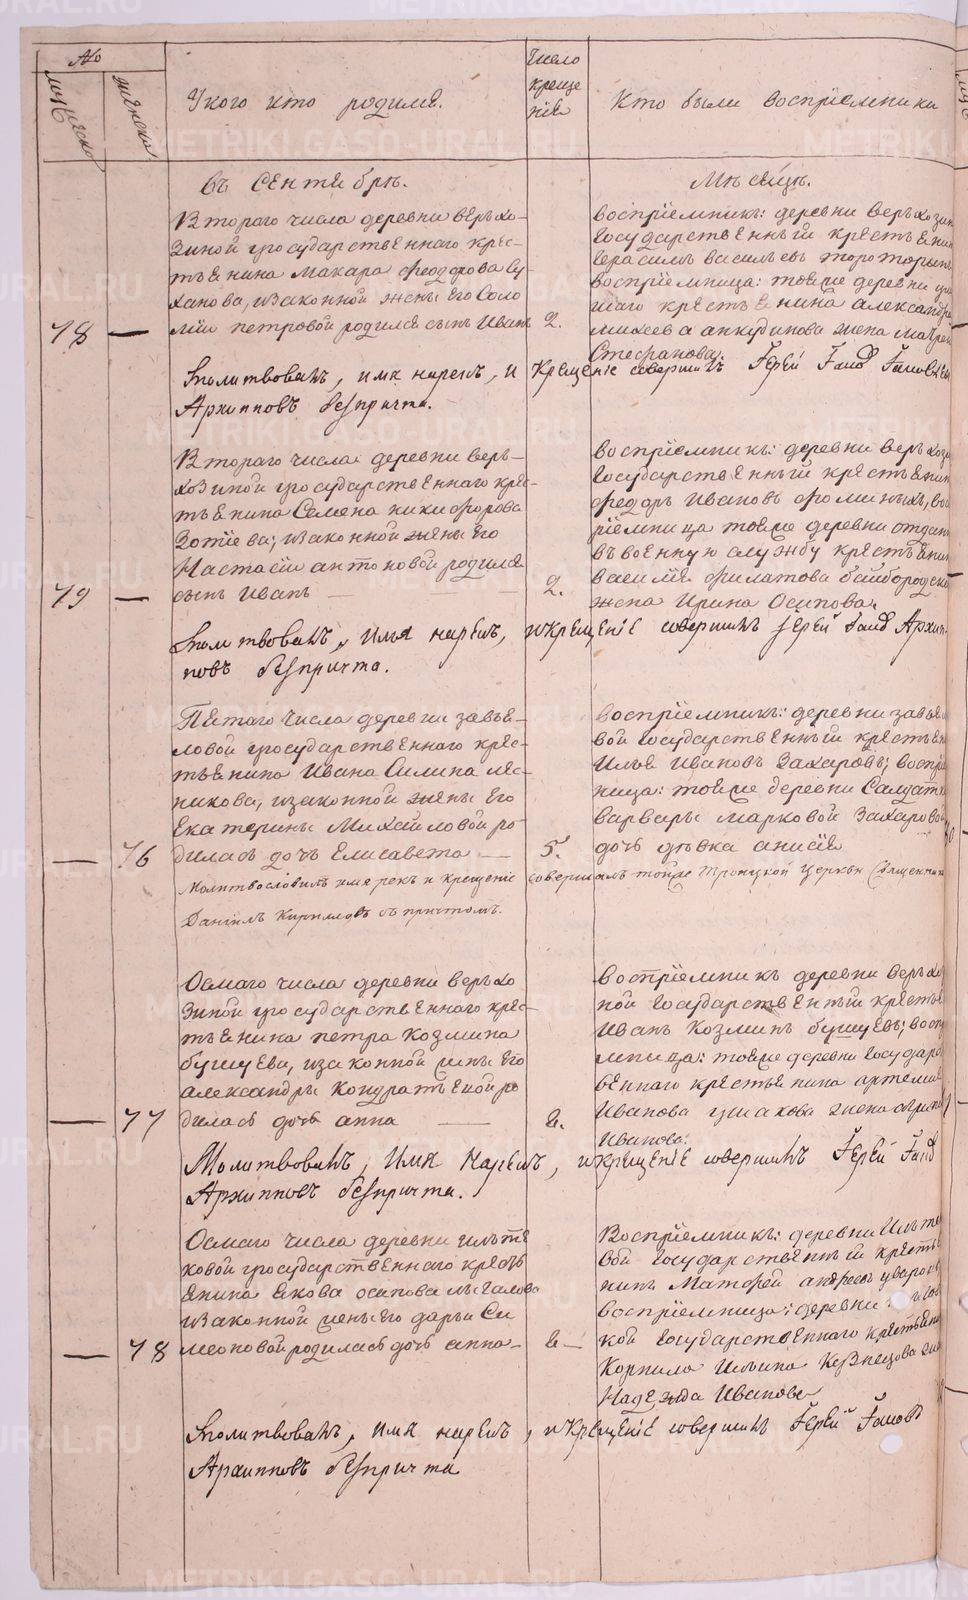 №
мужеска
женска
У кого кто родился.
Число
креще
нія
Кто были воспріемники
Въ Сентябрѣ.
Мѣсяцѣ.
Втораго числа деревни Верьхо-
зиной государственнаго крес-
тьянина Макара Феодорова Су-
ханова, изаконной жены его Соло
міи Петровой родился сынъ Иванъ
78
2.
Воспріемникъ: деревни Верьхозин
Государственный крестьянин
Герасимъ Васильевъ
воспріемница: тояже деревни
крестьянина Александра
Михеева Анкудинова жена
Стефанова.
Молитвовалъ, имя нарекъ, и крещеніе совершилъ Іерей
Архипповъ безпричта.
Втораго числа деревни Верь-
хозиной государственнаго крес-
тьянина Семена Никифорова
Зотіева, изаконной жены его
Настасіи Антоновой родился
сынъ Иванъ
79
2.
Воспріемникъ: деревни Верьхоз
Государственный крестьянин
Федоръ Ивановъ Фоминыхъ, вос
ріемница тояже деревни отдан
въ военную службу крестьянин
Василія Филатова
жена Ирина Осипова.
Молитвовалъ, имя нарекъ, и крещеніе совершилъ Іерей Архип-
повъ безпричта.
Пятаго числа деревни Завья-
ловой государственнаго крес-
тьянина Ивана Силина Мяс-
никова, изаконной жены его
Екатерины Михайловой ро
дилась дочь Елисавета
76
5.
Воспріемникъ: деревни Завья
вой Государственный крестьян
Илья Ивановъ Захаровъ; воспріе
ница: тояже деревни Салдатк
Варвары Марковой Захаровой
дочь дѣвка Анисія
Молитвословилъ имя рекъ и крещеніе совершалъ тойже Троицкой церкви Священник
Даніилъ Кирилловъ съ причтомъ.
Осмаго числа деревни Верьхо
зиной государственнаго крес-
тьянина Петра Козмина
Бушуева, изаконной жены его
Александры Кондратьевой ро
дилась дочь Анна
77
8.
Воспріемникъ деревни Верьхо
ной Государственный крестья
Иванъ Козминъ Бушуевъ; воспр
мница: тояже деревни Государ
веннаго крестьянина Артемія
Иванова Ушакова жена
Иванова.
Молитвовалъ, имя нарекъ, и крещеніе совершилъ Іерей
Архипповъ безпричта.
Осмаго числа деревни Игнатя
ковой государственнаго кресть
янина Якова Осипова
изаконной жены его Дарьи Си
меоновой родилась дочь Анна
78
8
Воспріемникъ: деревни
вой Государственный кресть
нинъ Матфей Андреевъ Уваров
воспріемница: деревни
кой Государственнаго крестьяни
Корнила Ильина Кузнецова
Надежда Иванова
Молитвовалъ, имя нарекъ, и крещеніе совершилъ Іерей
Архипповъ безпричта
METRIKI.GASO-URAL.RU